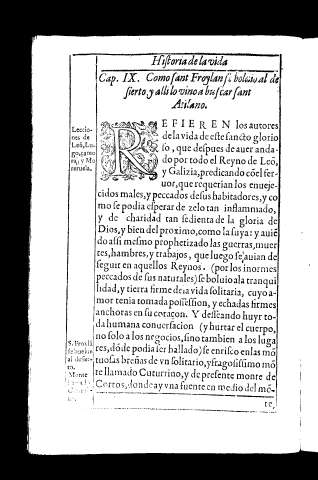 Historia de la vida
Cap. IX. Como sant Froylan se boluio al de
sierto, y alli lo vino a buscar sant
Atilano.
Leccio-
nes de
Leõ, Lu-
go, çamo
ra, y Mo
reruela.
REFIEREN los autores
de la vida de este sancto glorio
so, que despues de auer anda-
do por todo el Reyno de Leõ,
y Galizia, predicando cõ el fer
uor, que requerian los enueje-
cidos males, y peccados de sus habitadores, y co
mo se podia esperar de zelo tan inflammado,
y de charidad tan sedienta de la gloria de
Dios, y bien del proximo, como la suya: y auiē
do assi mesmo prophetizado las guerras, muer
tes, hambres, y trabajos, que luego se auian de
seguir en aquellos Reynos. (por los inormes
peccados de sus naturales) se boluio a la tranqui
lidad, y tierra firme de la vida solitaria, cuyo a-
mor tenia tomada possession, y echadas firmes
anchoras en su coraçon. Y desseando huyr to
da humana conuersacion (y hurtar el cuerpo,
no solo a los negocios, sino tambien a los luga
res, dõde podia ser hallado) se enrisco en las mõ
tuosas breñas de vn solitario, y fragosissimo mõ
te llamado Cuturrino, y de presente monte de
Corros, donde ay vna fuente en medio del mõ-
S. Froylã
se buelue
al desier-
to.
Monte
te,